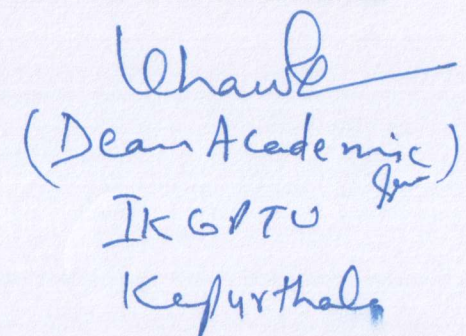 (Dean Academic)
IKGPTU
Kapurthala